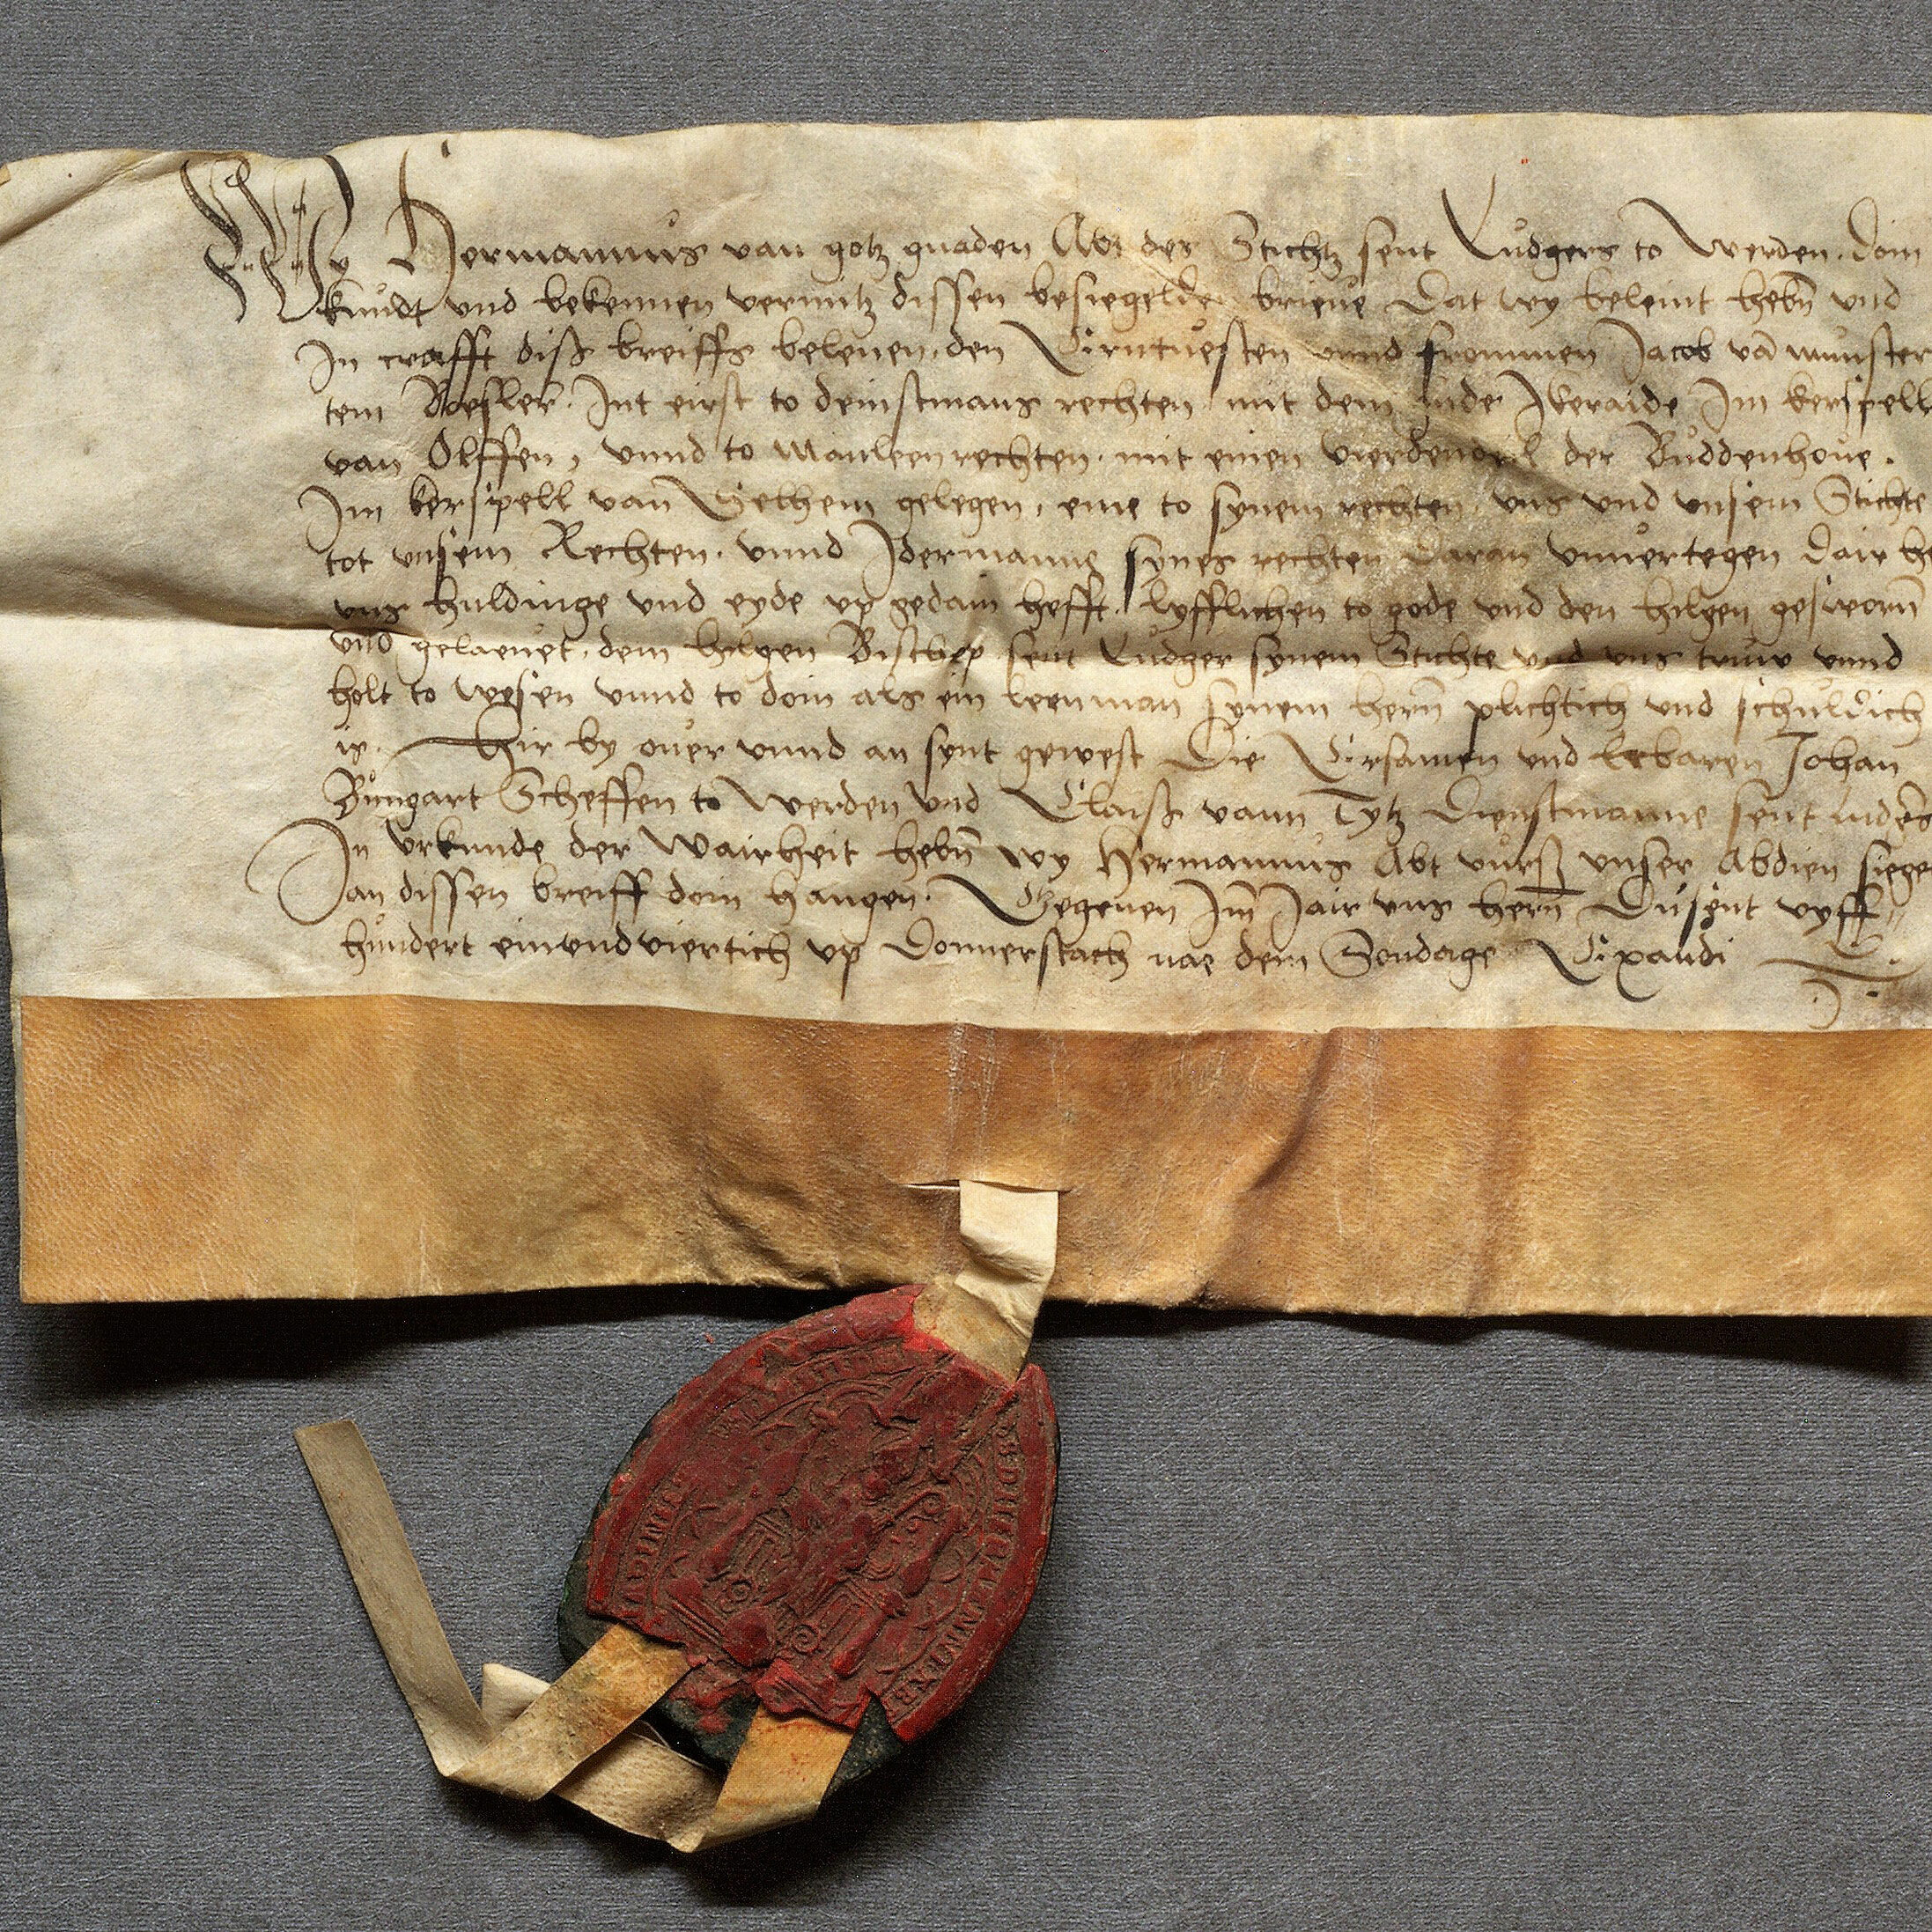 Wy Hermannus van gotz gnaden Abt des Stichtz sent Ludgers to Werden. doin
kundt und bekennen vermitz dissen besiegelden brieue Dat wy beleint hebn̄ und
In crafft diss breiffs belenen. den Eirntuesten unnd frommen Jacob vā munster
tem Int eirst to deinstmans rechten mit dem Im kerspell
van Olffen, unnd to Manleenrechten. mit einen vierdendeil der Buddenhoue.
Im kerspell van Selhem gelegen, eme to synem rechten, uns und unsem Stichte
tot unsem Rechten. unnd Idermanns synes rechten daran unuertegen dair he
uns huldinge und eyde up gedain hefft. lyfflichen to gode und den hilgen gesworn̄
und gelaeuet. dem hilgen Bischop sent Ludger synem Stichte und uns truw unnd
holt to wesen unnd to doin als ein leenman synem hern̄ plichtich und schuldich
is. Hir by ouer unnd an synt gewest Die Eirsamen und Erbaren Johan
Bungart Scheffen to Werden und Claiss vann Tytz Dienstmanne sent
In urkunde der Wairheit hebn̄ wy Hermannus Abt vurss unser Abdien siege
an dissen breiff doin hangen. Gegeuen Im̄ Jair uns hern̄ Dusent vyff
hundert einundviertich up Donnerstach nae dem Sondage Exaudi